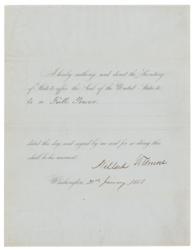 I hereby authorize and direct the Secretary
of State to affix the Seal of the United States to
to a Full Power
dated this day and signed by me and for so doing this
shall be his warrant.
Millard Fillmore
Washington, January